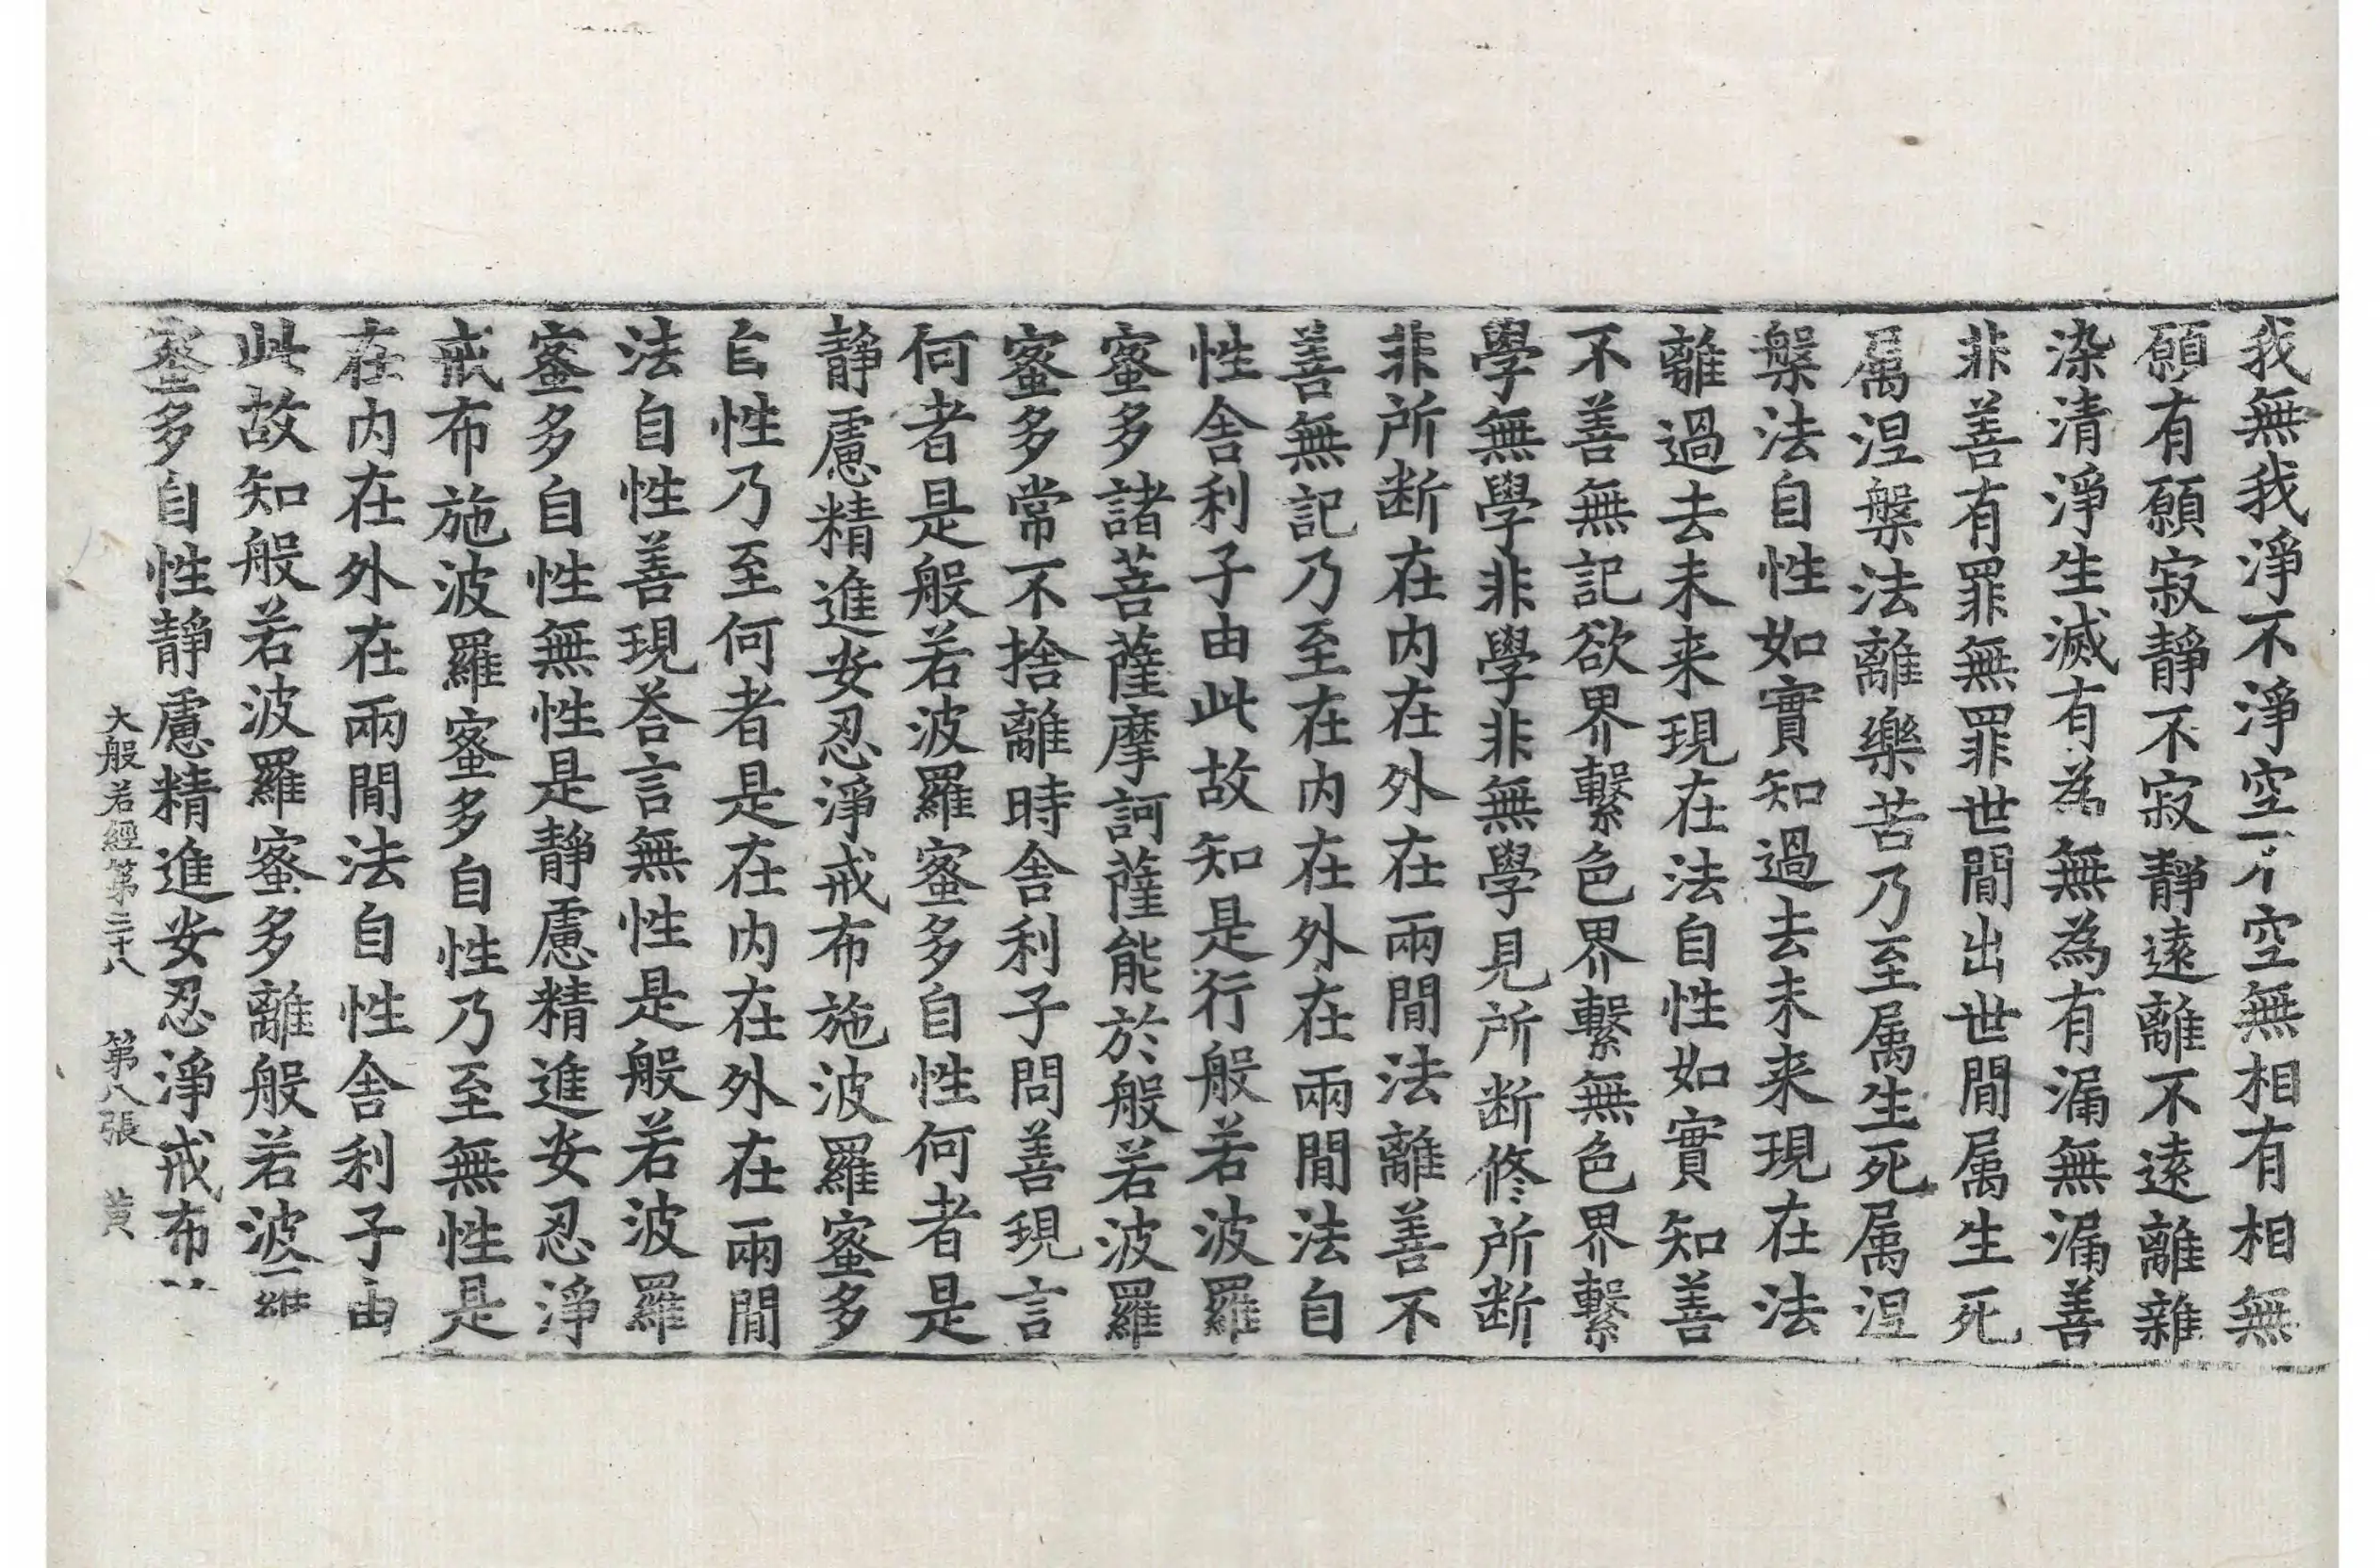 我無我淨不淨空不空無相有相無
願有願寂靜不寂靜遠離不遠離雜
染清淨生滅有為無為有漏無漏善
非善有罪無罪世閒出世閒属生死
属涅槃法離樂苦乃至属生死属涅
槃法自性如實知過去未来現在法
離過去未来現在法自性如實知善
不善無記欲界繫色界繫無色界繫
學無學非學非無學見所断修所断
非所断在内在外在兩閒法離善不
善無記乃至在内在外在兩閒法自
性舎利子由此故知是行般若波羅
蜜多諸菩薩摩訶薩能於般若波羅
蜜多常不捨離時舎利子問善現言
何者是般若波羅蜜多自性何者是
靜慮精進安忍淨戒布施波羅蜜多
自性乃至何者是在内在外在兩閒
法自性善現荅言無性是般若波羅
蜜多自性無性是靜慮精進安忍淨
戒布施波羅蜜多自性乃至無性是
在内在外在兩閒法自性舎利子由
此故知般若波羅蜜多離般若波羅
蜜多自性靜慮精進安忍淨戒布
大般若經第三十八 第八張 黄